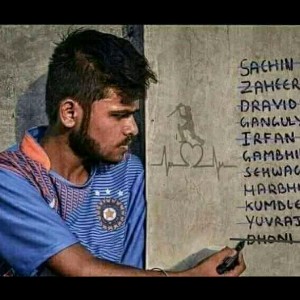 SACHIN
ZAHEER
DRAVID
GANGULY
IRFAN
GAMBHI
SEHWAG
HARBH
KUMBLE
YUVRAJ
DHONI